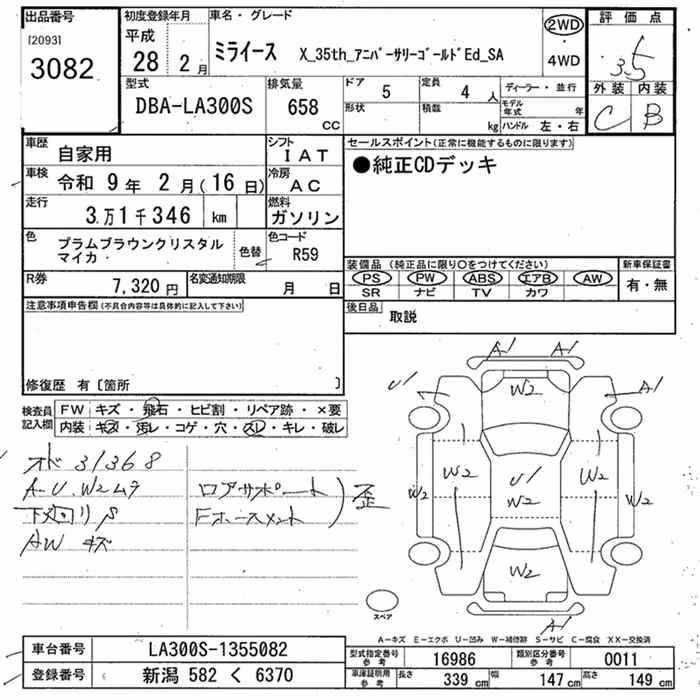 出品番号
[2093]
3082
初度登録年月
平成
28 2月
車名・グレード
ミライース X_35th_アニバーサリーゴールドEd_SA
2WD
・
4WD
評価点
3.5
外装 内装
C B
型式
DBA-LA300S
排気量
658
cc
ドア
5
定員
4人
形状
積載
kg
ディーラー・並行
モデル年式 年
ハンドル 左・右
車歴
自家用
シフト
IAT
車検 令和 9年 2月(16日)
冷房
AC
走行
3万1千346 km
燃料
ガソリン
色
プラムブラウンクリスタル
マイカ
色替
色コード
R59
R券
7,320円
名変通知期限
月 日
セールスポイント(正常に機能するものに限ります)
●純正CDデッキ
装備品 (純正品に限り○をつけてください)
PS PW ABS エアB AW
SR ナビ TV カワ
新車保証書
有・無
後日品
取説
注意事項申告欄(不具合内容等は具体的に記入して下さい)
修復歴 有〔箇所 〕
検査員
記入欄
FW キズ・飛石・ヒビ割・リペア跡・×要
内装 キズ・汚レ・コゲ・穴・スレ・キレ・破レ
オド 31368
A-U.W2ムラ
下廻りS
AW キズ
ロアサポート
Fホースメント
歪
A1 A1
W2
U1 A1
W2 W2 U1 W2 W2
W2
W2
A1
スペア
A-キズ E-エクボ U-凹み W-補修跡 S-サビ C-腐食 XX-交換済
車台番号 LA300S-1355082
登録番号 新潟 582 く 6370
型式指定番号
参考
16986
類別区分番号
参考
0011
車庫証明用
参考
長さ 339 cm 幅 147 cm 高さ 149 cm